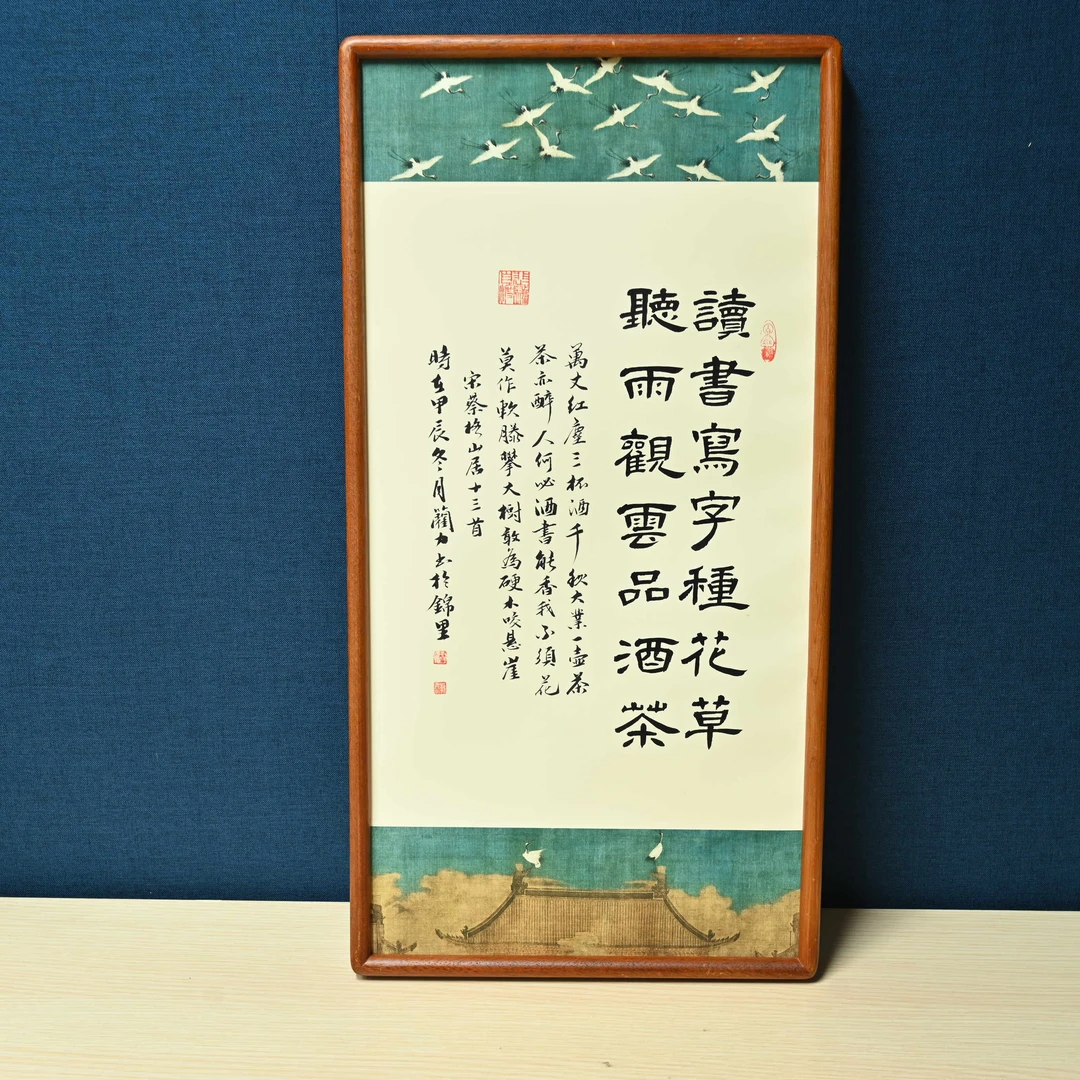 讀書寫字種花草
聽雨觀雲品酒茶
萬丈紅塵三杯酒千秋大業一壺茶
茶亦醉人何必酒書能香我不須花
莫作軟藤攀大樹敢為硬木咬懸崖
宋蔡格山居十三首
時在甲辰冬月蘭力書於錦里